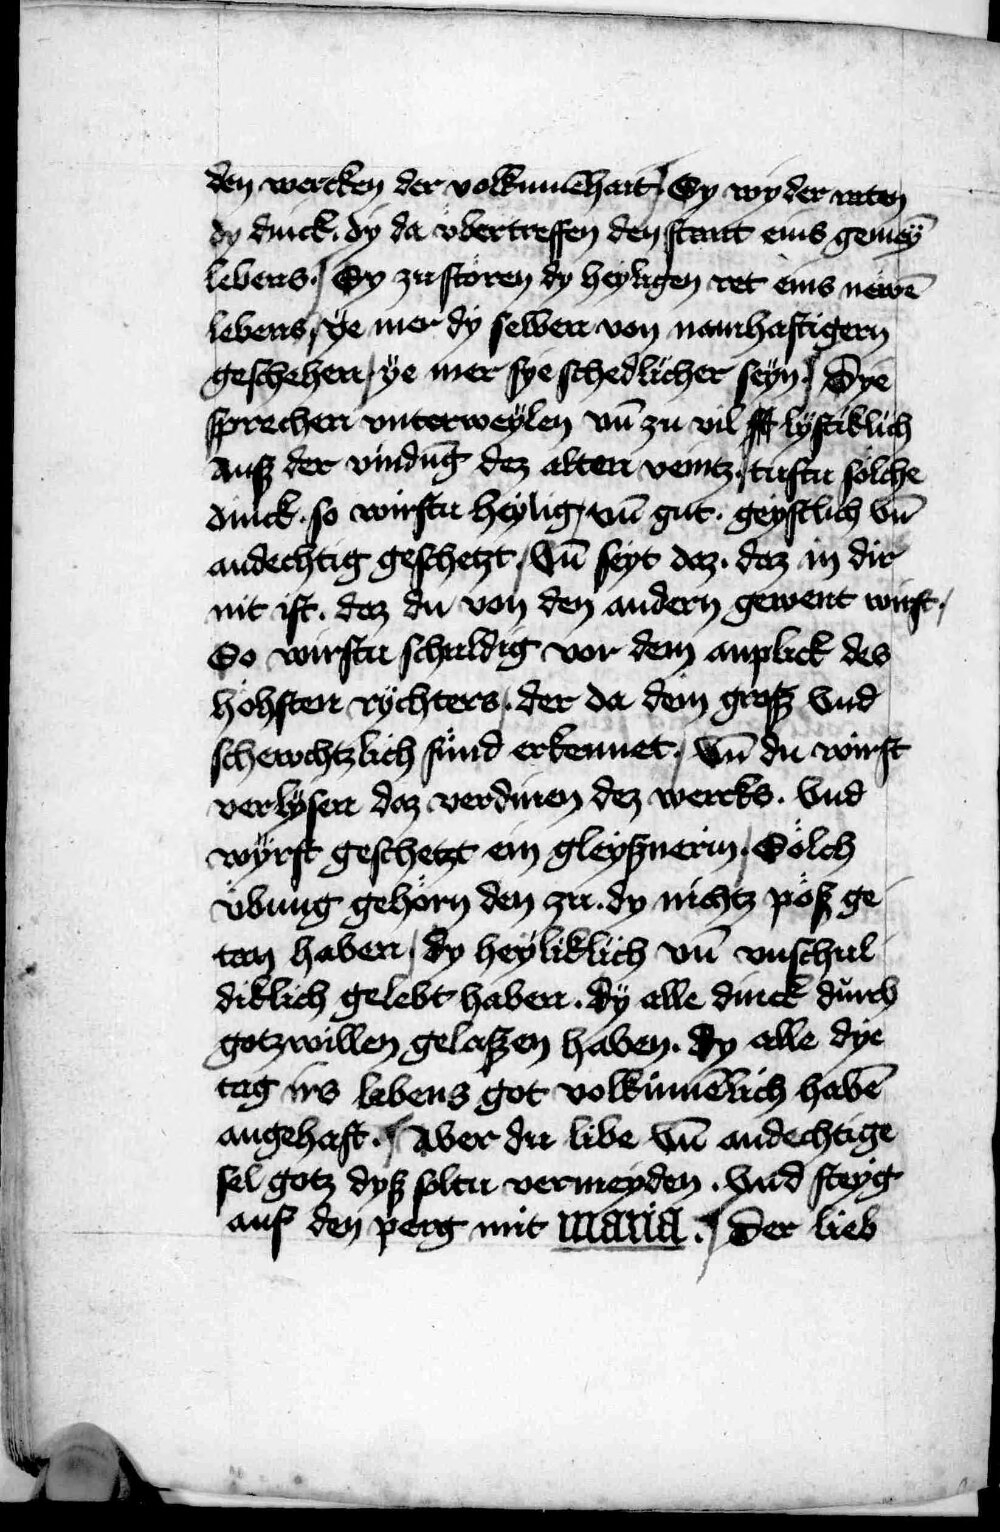 den wercken der volkumēhait / Sy wyder raten
dy dinck. dy da vbertreffen den staat eins gemeÿ̄
lebens. / Sy zustören dy heyligen ret eins newē
lebens / ÿe mer dÿ selben von namhaftigern
geschehen / ÿe mer sye schedlicher seÿn. / Dye
sprechen vnterweÿlen vn̄ zu vil lÿstiklich
Auß der vindūg dez alten veintz. / tustu sölche
dinck. so wirstu heylig / vn̄ gut. geystlich vn̄
andechtig geschetzt / Vn̄ seyt daz. daz in dir
nit ist. daz du von den andern gewent wirst. /
So wirstu schuldig vor dem anplick des
höhsten rÿchters / der da dein groß Vnd
schewchtzlich sünd erkennet. / Vn̄ du wirst
verlÿsen daz verdinen dez wercks. Vnd
wÿrst geschetzt ein gleyßnerin. / Sölch
übung gehörn den zu. dy nichtz pöß ge
tan haben / dy heÿliklich vn̄ vnschul
diklich gelebt haben. Dÿ alle dinck dürch
gotzwillen gelaßen haben. Dy alle dye
tag irs lebens got volkumēlich habē
angehaft. / Aber du libe Vn̄ andechtige
sel gotz dyß soltu vermeyden. Vnd steÿg
auf den perg mit maria. / Der lieb